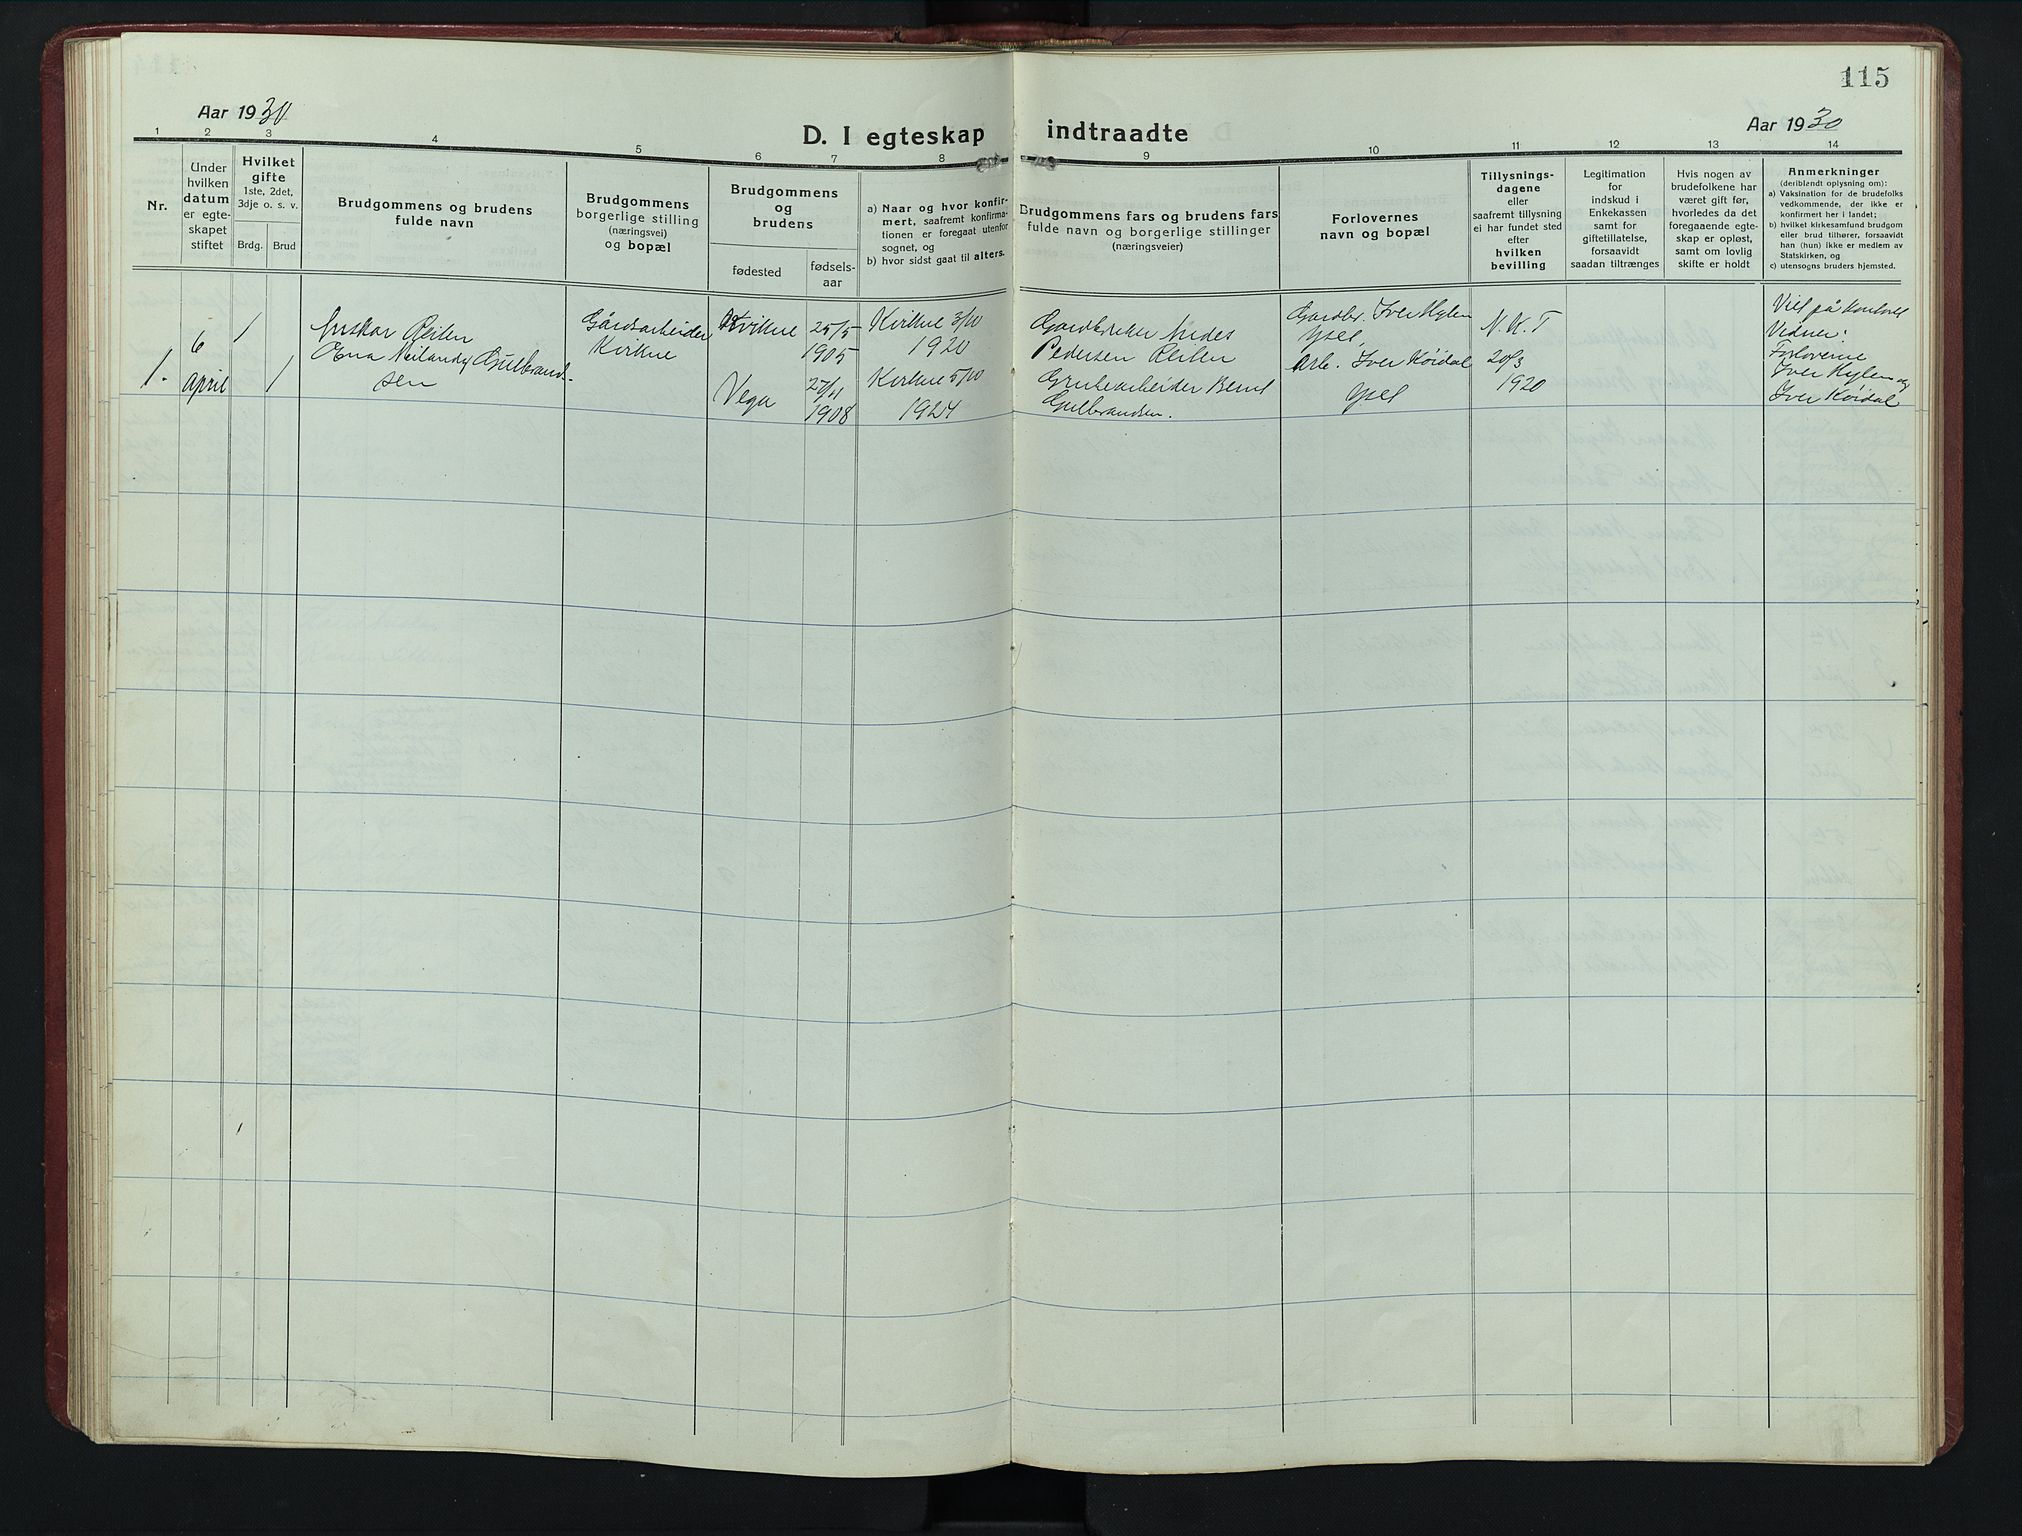 115
Aar 1930
D. I egteskap indtraadte
Aar 1930
1 2 3 4 5 6 7 8 9 10 11 12 13 14
Nr.
Under
hvilken
datum
er egte-
skapet
stiftet
Hvilket
gifte
1ste, 2det,
3dje o. s. v.
Brdg. Brud
Brudgommens og brudens
fulde navn
Brudgommens
borgerlige stilling
(næringsvei)
og bopæl
Brudgommens
og
brudens
fødested
fødsels-
aar
a) Naar og hvor konfir-
mert, saafremt konfirma-
tionen er foregaat utenfor
sognet, og
b) hvor sidst gaat til alters.
Brudgommens fars og brudens fars
fulde navn og borgerlige stillinger
(næringsveier)
Forlovernes
navn og bopæl
Tillysnings-
dagene
eller
saafremt tillysning
ei har fundet sted
efter
hvilken
bevilling
Legitimation
for
indskud i
Enkekassen
samt for
giftetillatelse,
forsaavidt
saadan tiltrænges
Hvis nogen av
brudefolkene har
været gift før,
hvorledes da det
foregaaende egte-
skap er opløst,
samt om lovlig
skifte er holdt
Anmerkninger
(deriblandt oplysning om):
a) Vaksination for de brudefolks
vedkommende, der ikke er
konfirmert her i landet;
b) hvilket kirkesamfund brudgom
eller brud tilhører, forsaavidt
han (hun) ikke er medlem av
Statskirken, og
c) utensogns bruders hjemsted.
1.
6
april
1
1
Reiten
Gulbrand-
sen
Gårdsarbeider
Kvikne
Kvikne
25/5
1905
Vega
27/11
1908
Kvikne 3/10
1920
Kvikne 5/10
1924
Gardbruker
Pedersen Reiten
Grubearbeider Bernt
Gulbrandsen.
Gardbr. Iver Hylen
Yset
Arb. Iver Röidal
Yset
N.K.T
20/3
1920
Viet på kontoret
Vidner:
Forloverne
Iver Hylen og
Iver Röidal